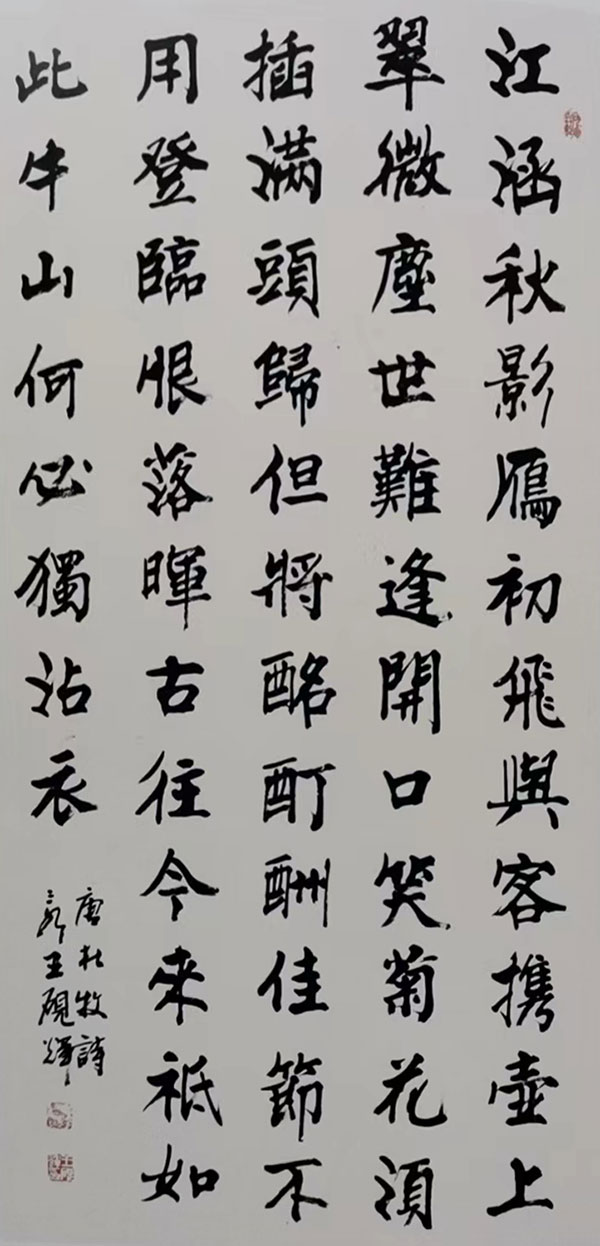 江涵秋影鴈初飛與客携壺上
翠微塵世難逢開口笑菊花須
插滿頭歸但將酩酊酬佳節不
用登臨恨落暉古往今來祇如
此牛山何必獨沾衣
唐杜牧詩
王硯輝